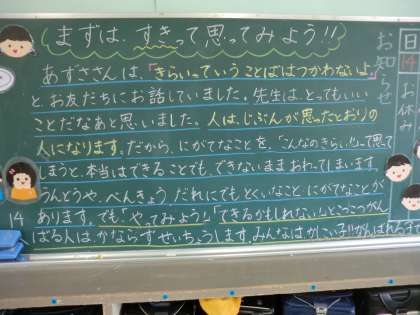 まずは、すきって思ってみよう!!
あずささんは、「きらいっていうことばはつかわないよ」
と、お友だちにお話していました。先生は、とってもいい
ことだなあと思いました。人は、じぶんが思ったとおりの
人になります。だから、にがてなことを、「こんなのきらい!!」って思って
しまうと、本当はできることでも、できないままおわってしまいます。
うんどうや、べんきょう、だれにでもとくいなこと、にがてなことが
あります。でも「やってみよう!」「できるかもしれない!」とこつこつがん
ばる人は、かならずせいちょうします。みんなはかしこい子!!がんばれる子
14
日
14
お知らせ
お休み